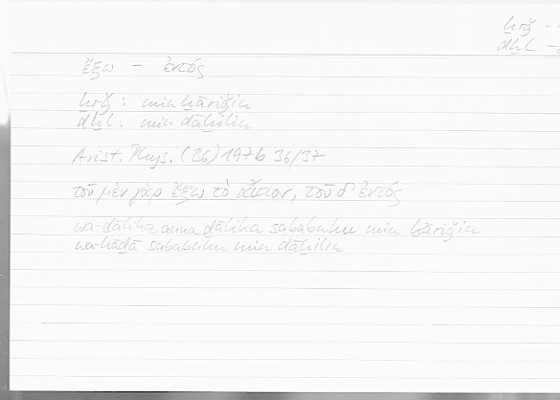 ḫrǧ -
dḫl -
ἔξω - ἐντός
ḫrǧ : min ḫāriǧin
dḫl : min dāḫilin
Arist. Phys. (B6) 197b 36/37
τοῦ μὲν γὰρ ἔξω τὸ αἴτιον, τοῦ δ' ἐντός
wa-ḏālika anna ḏālika sababuhu min ḫāriǧin
wa-hāḏā sababuhu min dāḫilin